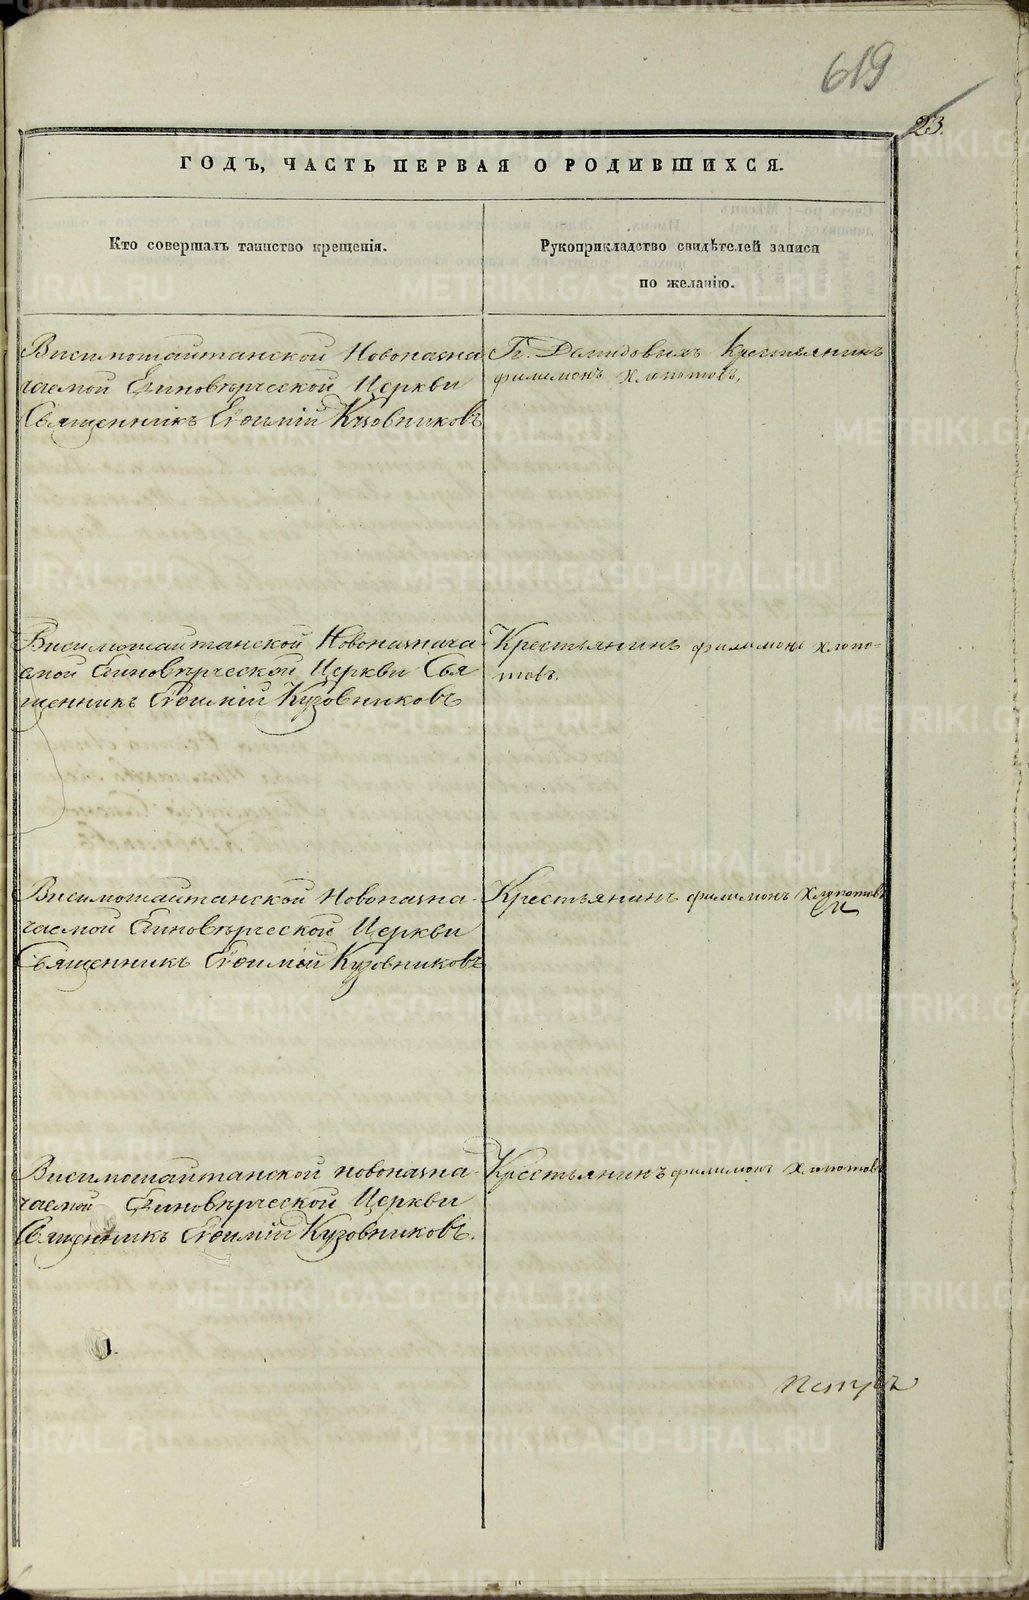 619
23.
ГОДЪ, ЧАСТЬ ПЕРВАЯ О РОДИВШИХСЯ.
Кто совершалъ таинство крещенія.
Рукоприкладство свидѣтелей записи
по желанію.
Висимошайтанской Новоназна
чаемой Единовѣрческой Церкви
Священникъ Евѳимій Кузовниковъ
Гг. Демидовыхъ Крестьянинъ
филимонъ Хлопотовъ,
Висимошайтанской Новоназнача-
емой Единовѣрческой Церкви Свя
щенникъ Евѳимій Кузовниковъ
Крестьянинъ филимонъ Хлопо-
товъ.
Висимошайтанской Новоназна-
чаемой Единовѣрческой Церкви
Священникъ Евѳимій Кузовниковъ
Крестьянинъ филимонъ Хлопотовъ
Висимошайтанской новоназна-
чаемой Единовѣрческой Церкви
Священникъ Евѳимій Кузовниковъ.
Крестьянинъ филимонъ Хлопотовъ
Петръ
METRIKI.GASO-URAL.RU